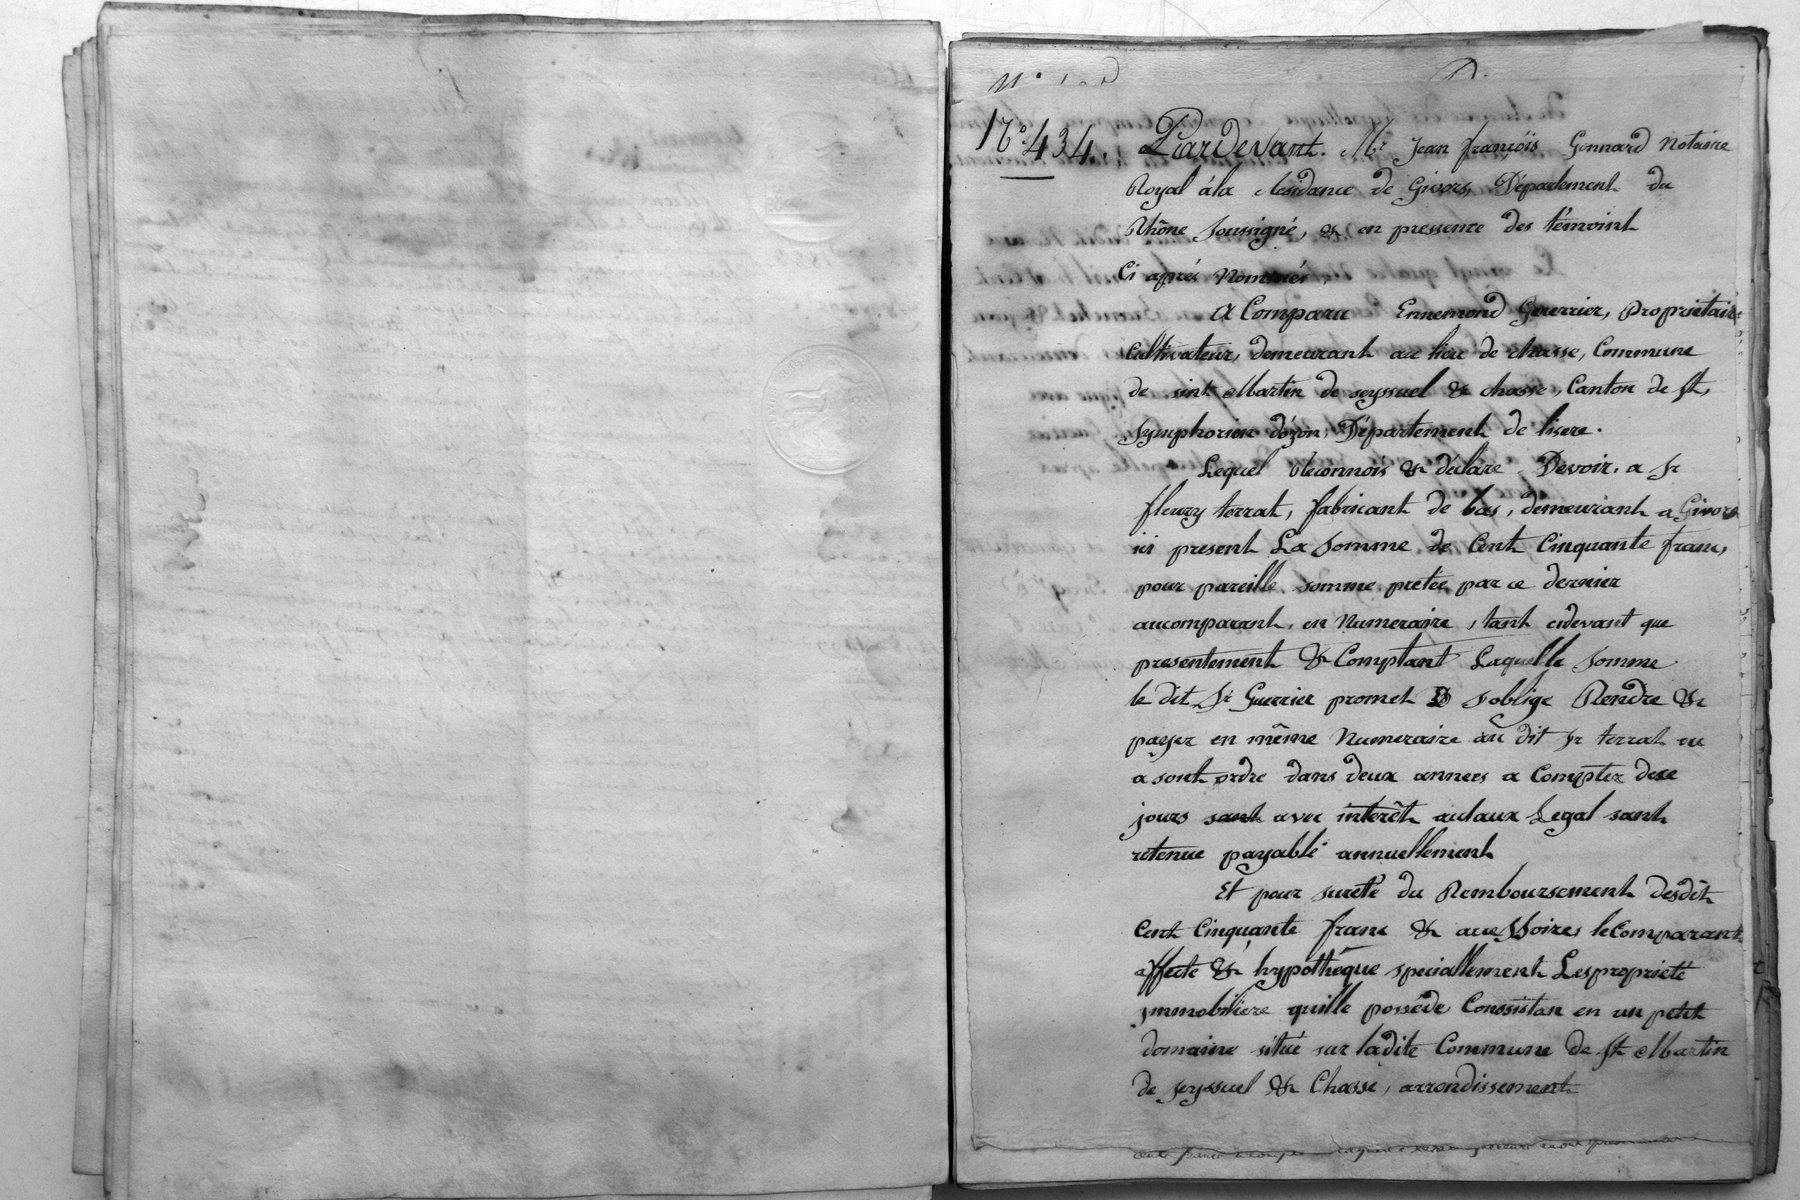 N° 434. Pardevant. Mr Jean françois Gonnard Notaire
Royal à la Residance de Givors, Département du
Rhône soussigné, & en pressence des témoint
Ci aprés Nommés,
A Comparu Ennemond Guerrier, Propriétaire
Cultivateur, demeurant au lieu de chasse, Commune
de sint Martin de seyssuel & chasse, Canton de St,
Symphorien d'ozon, Département de lisere.
Lequel Reconnois & déclare Devoir. a Sr
fleury terrat, fabricant de bas, demeurant a Givors
ici present La Somme de Cent Cinquante franc,
pour pareille somme prétée par ce dernier
aucomparant, en Numeraire, tant cidevant que
presentement & Comptant Laquelle somme
le dit Sr Guerrier promet & s'oblige Rendre &
payer en même Numeraire au dit Sr terrat ou
a sont ordre dans deux annees a Compter dece
jours sant avec interêt autaux Legal sant
retenue payablé annuellement
Et pour sureté du Remboursement desdit
Cent Cinquante franc & accessoires leComparant
affecte & hypothéque speciallement Lespropriété
immobiliere quille posséde Conssistan en un petit
domaine situé sur ladite Commune de St Martin
de seyssuel & Chasse, arrondissement